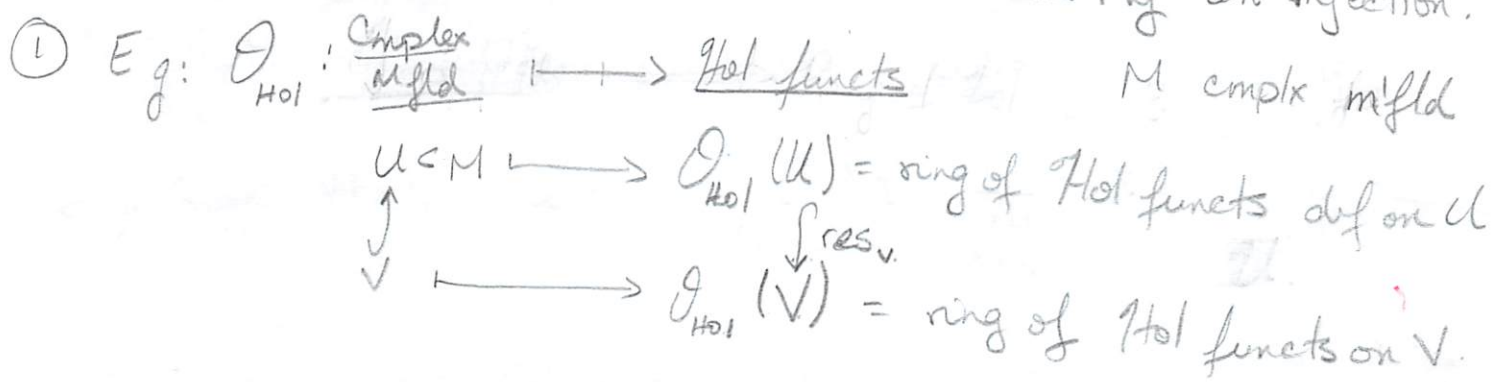 injection.
① Eg: O_Hol : Cmplex Mfld ⟼ Hol functs M cmplx m'fld
U ⊂ M ⟼ O_Hol (U) = ring of Hol functs def on U
↪ res_V.
V ⟼ O_Hol (V) = ring of Hol functs on V.